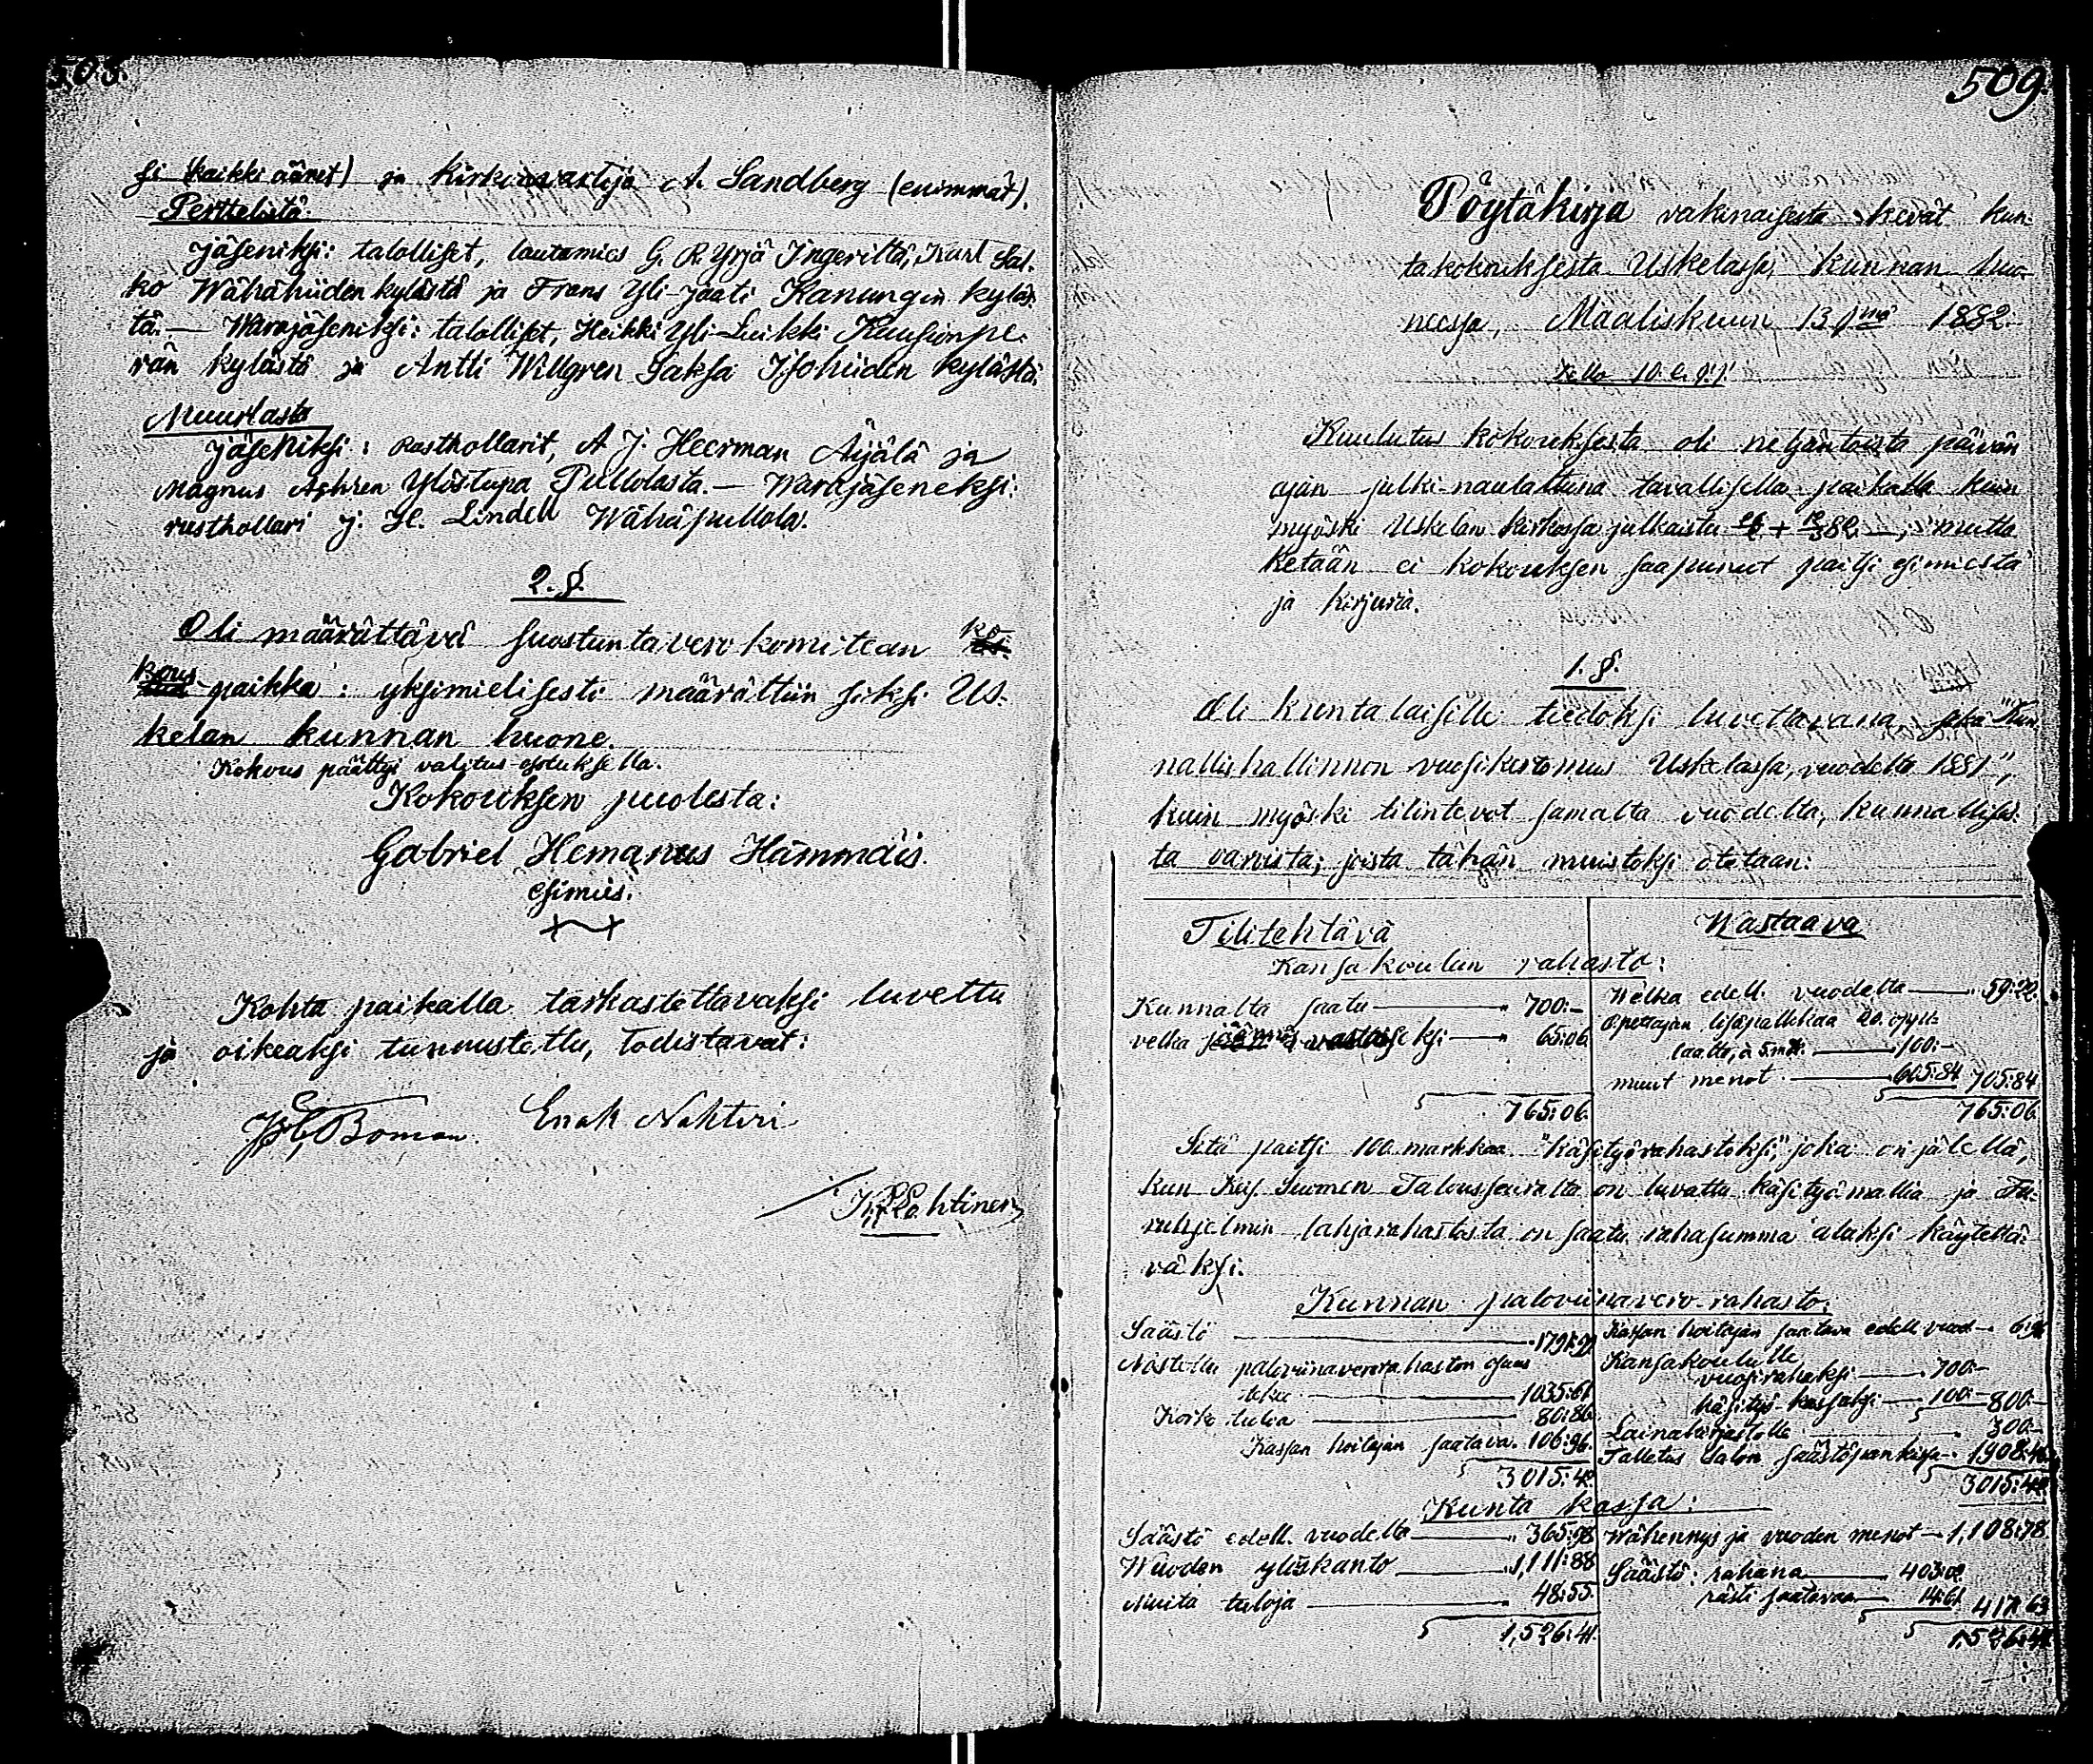 508.
si (kaikki äänet) ja kirkonvartija A. Sandberg (enimmät).
Perttelistä.
jäseniksi: talolliset, lautamies G. R. Yrjä Ingeriltä, Karl Sal-
ko Wähähiiden kylästä ja Frans Yli-Jaati Kanungin kyläs-
tä. — Warajäseniksi: talolliset, Heikki Yli-Luikki Kuusjonpe-
rän kylästä ja Antti Willgren Saksa Isohiiden kylästä.
Muurlasta
jäseniksi: Rusthollarit, A. J. Heerman Äijälä ja
Magnus Ylöstupa Pullolasta. — Warajäseneksi:
rusthollari J. H. Lindell Wähäpullola.
2. §.
Oli määrättävä suostuntavero komitean ko-
kous-paikka: yksimielisesti määrättiin siksi Us-
kelan kunnan huone.
Kokous päättyi valitus-osotuksella.
Kokouksen puolesta:
Gabriel Hemanus Hämmäis.
esimies.
Kohta paikalla tarkastettavaksi luvettu
ja oikeaksi tunnustettu, todistavat:
Boman. Enok Nohteri
K. F. Lehtinen
509.
Pöytäkirja vakinaisesta kevät kun-
takokouksesta Uskelassa, kunnan huo-
neessa, Maaliskuun 13 p:nä 1882.
Kello 10. e. p. p.
Kuulutus kokouksesta oli neljäntoista päivän
ajan julki-naulattuna tavallisella paikalla kuin
myöski Uskelan kirkossa julkaistu 26/2 + 12/3 82 —, mutta
Ketään ei kokouksen saapunut paitsi esimiestä
ja kirjuria.
1. §.
Oli kuntalaisille tiedoksi luvettavana sekä "Kun-
nallishallinnon vuosikertomus Uskelassa, vuodelta 1881",
kuin myöski tilintevot samalta vuodelta, kunnallisis-
ta varoista; joista tähän muistoksi otetaan:
Tilitehtävä Wastaava
Kansakoulun rahasto:
Kunnalta saatu — 700:—
velka jäämä vastaiseksi — 65:06.
765:06.
Welka edell. vuodelta — 59:22.
Opettajan lisäpalkkaa 20. oppi-
laalta, à 5 mk. — 100:—
muut menot — 605:84 705:84
765:06.
Sitä paitsi 100 markkaa "käsityörahastoksi," joka on jälellä,
kun Keis. Suomen Talousseuralta on luvattu käsityömallia ja Fu-
ruhjelmin lahjarahastosta on saatu rahasumma alaksi käytettä-
väksi.
Kunnan paloviinavero-rahasto.
Säästö — 1791:99
Nostettu paloviinaverorahaston osuus
tekee — 1035:61
Korko tuloa — 80:86.
Kassan hoitajan saatava. 106:96.
3015:42.
Kassan hoitajan saatava edell. vuod. — 6:96
Kansakoululle
vuosirahaksi — 700:—
käsityö-kassaksi — 100:— 800:—
Lainakirjastolle — 300:—
Talletus Salon säästöpankissa — 1908:46
3015:42
Kunta kassa:
Säästö edell. vuodelta — 365:98
Wuoden yliskanto — 1,111:88
Muita tuloja — 48:55.
1,526:41.
Wähennys ja vuoden menot — 1,108:78.
Säästö: rahana — 403:02.
rästi saatavaa — 14:61 417:63
1,526:41